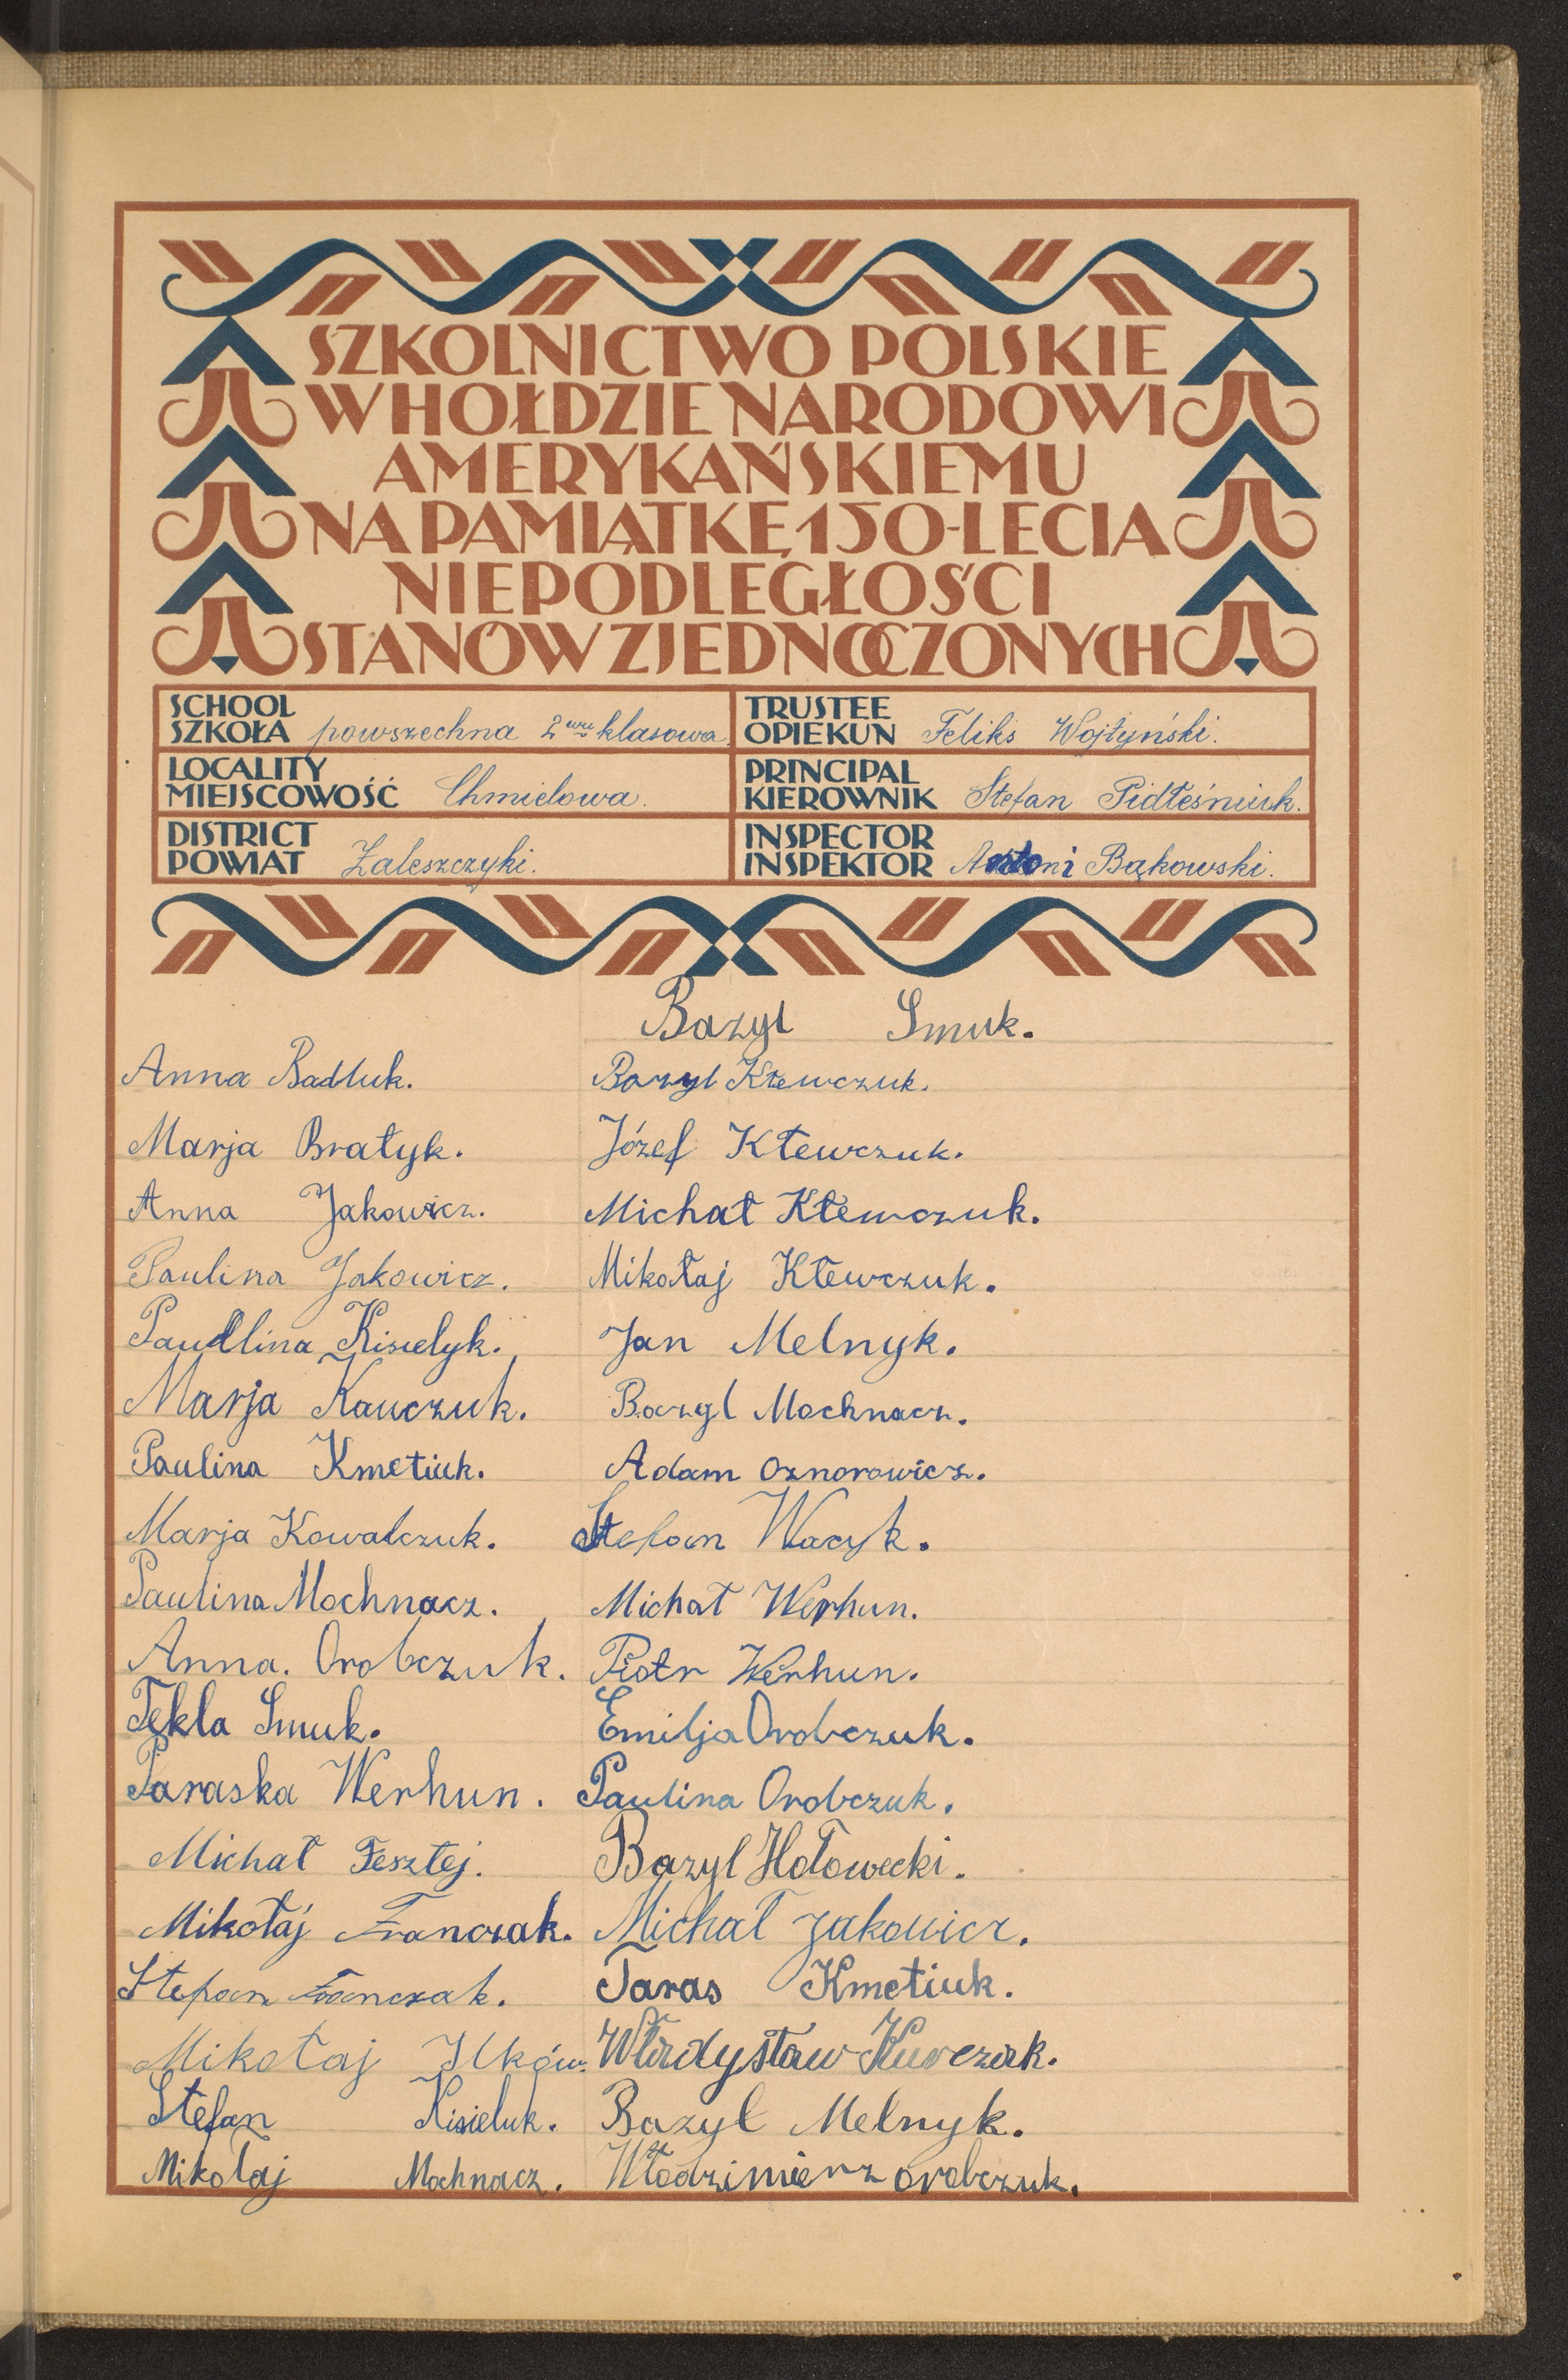 SZKOLNICTWO POLSKIE
W HOŁDZIE NARODOWI
AMERYKAŃSKIEMU
NA PAMIĄTKĘ 150-LECIA
NIEPODLEGŁOŚCI
STANÓW ZJEDNOCZONYCH
SCHOOL
SZKOŁA powszechna 2wu klasowa
TRUSTEE
OPIEKUN Feliks Wojtyński.
LOCALITY
MIEJSCOWOŚĆ Chmielowa.
PRINCIPAL
KIEROWNIK Stefan Pidłeśniuk.
DISTRICT
POWIAT Zaleszczyki.
INSPECTOR
INSPEKTOR Antoni Bąkowski.
Bazyl Smuk.
Anna Badluk.
Marja Bratyk.
Anna Jakowicz.
Paulina Jakowicz.
Paudlina Kisielyk.
Marja Kawczuk.
Paulina Kmetiuk.
Marja Kowalczuk.
Paulina Mochnacz.
Anna. Orobczuk.
Tekla Smuk.
Paraska Werhun.
Michał Fesztej.
Mikołaj Franczak.
Stefan Franczak.
Mikołaj Ilków.
Stefan Kisieluk.
Mikołaj Mochnacz.
Bazyl Kłewczuk.
Józef Kłewczuk.
Michał Kłewczuk.
Mikołaj Kłewczuk.
Jan Melnyk.
Bazyl Mochnacz.
Adam Oznorowicz.
Stefan Wacyk.
Michał Werhun.
Piotr Werhun.
Emilja Orobczuk.
Paulina Orobczuk.
Bazyl Hołowecki.
Michał Jakowicz.
Taras Kmetiuk.
Władysław Kurczak.
Bazyl Melnyk.
Włodzimierz Orobczuk.